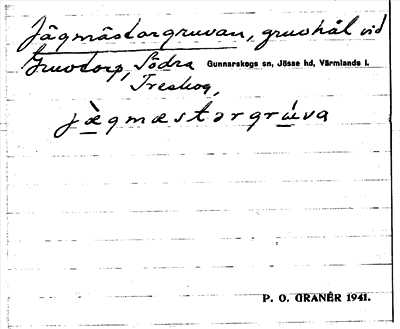 Jägmästargruvan, gruvhål vid
Gruvtorp, Södra Gunnarskogs sn, Jösse hd, Värmlands l.
Treskog,
jὲgmæstərgrúva
P. O. GRANÉR 1941.